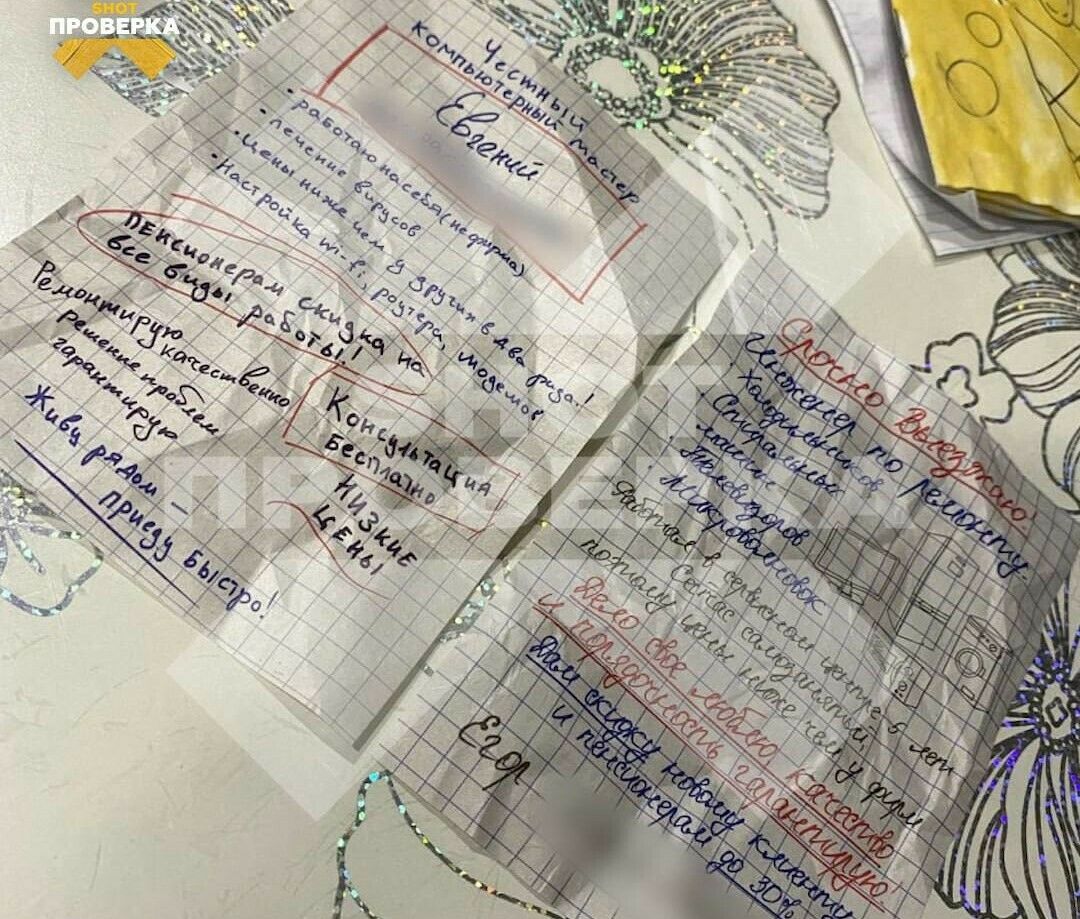 SHOT
ПРОВЕРКА
Честный
компьютерный мастер
Евгений
• работаю на себя (не фирма)
• лечение вирусов
• Цены ниже чем у других в два раза!
• Настройка Wi-fi, роутера, модемов
ПЕНСИОНЕРАМ скидка на
все виды работы!
Ремонтирую качественно
Решение проблем
гарантирую
Консультация
Бесплатно
НИЗКИЕ
ЦЕНЫ
Живу рядом –
приеду быстро!
Срочно Выезжаю.
Инженер по ремонту.
Холодильников
• Стиральных
машин
• Телевизоров
• Микроволновок
Работал в сервисном центре 6 лет
Сейчас самозанятый,
поэтому цены ниже чем у фирм
Дело свое люблю, качество
и порядочность гарантирую.
Дам скидку новому клиенту
и пенсионерам до 30%
Егор
SHOT
ПРОВЕРКА